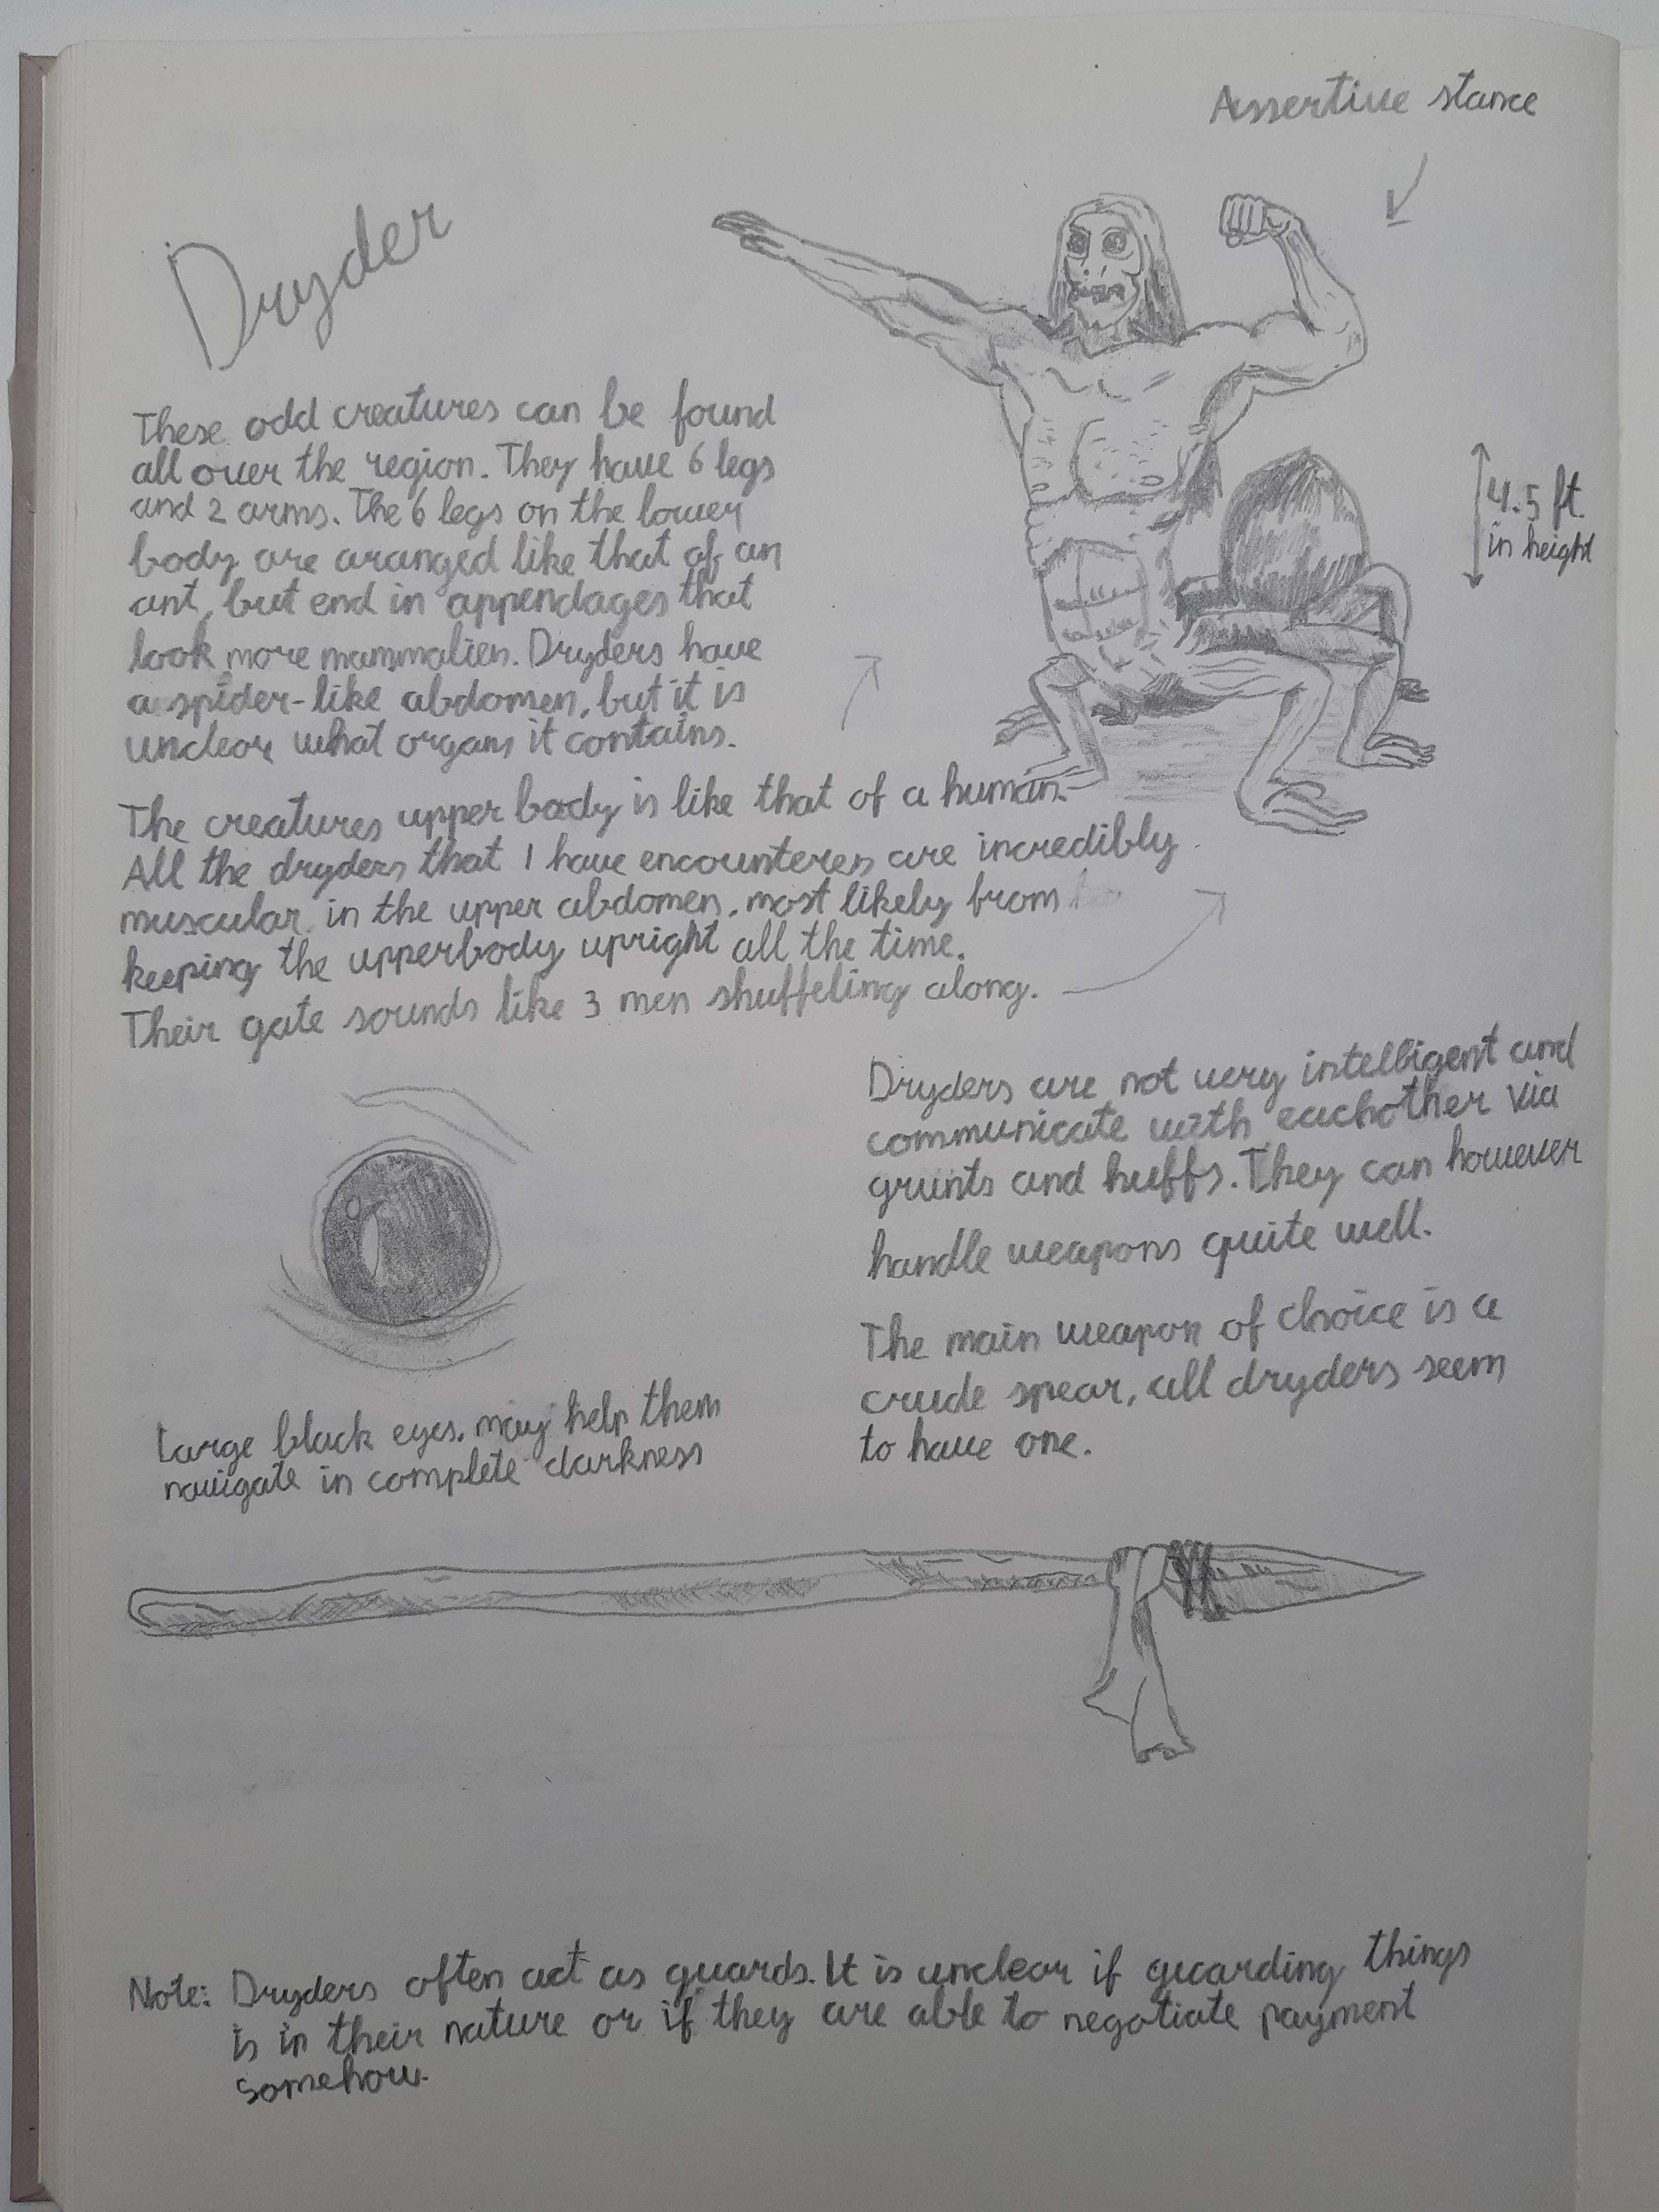 Assertive stance
Dryder
These odd creatures can be found
all over the region. They have 6 legs
and 2 arms. The 6 legs on the lower
body are aranged like that of an
ant, but end in appendages that
look more mammalien. Dryders have
a spider-like abdomen, but it is
unclear what organs it contains.
4.5 ft.
in height
The creatures upper body is like that of a human.
All the dryders that I have encounteres are incredibly
muscular in the upper abdomen, most likely from
keeping the upperbody upright all the time.
Their gate sounds like 3 men shuffeling along.
Dryders are not very intelligent and
communicate with eachother via
grunts and huffs. They can however
handle weapons quite well.
The main weapon of choice is a
crude spear, all dryders seem
to have one.
Large black eyes, may help them
navigate in complete darkness
Note: Dryders often act as guards. It is unclear if guarding things
is in their nature or if they are able to negotiate payment
somehow.